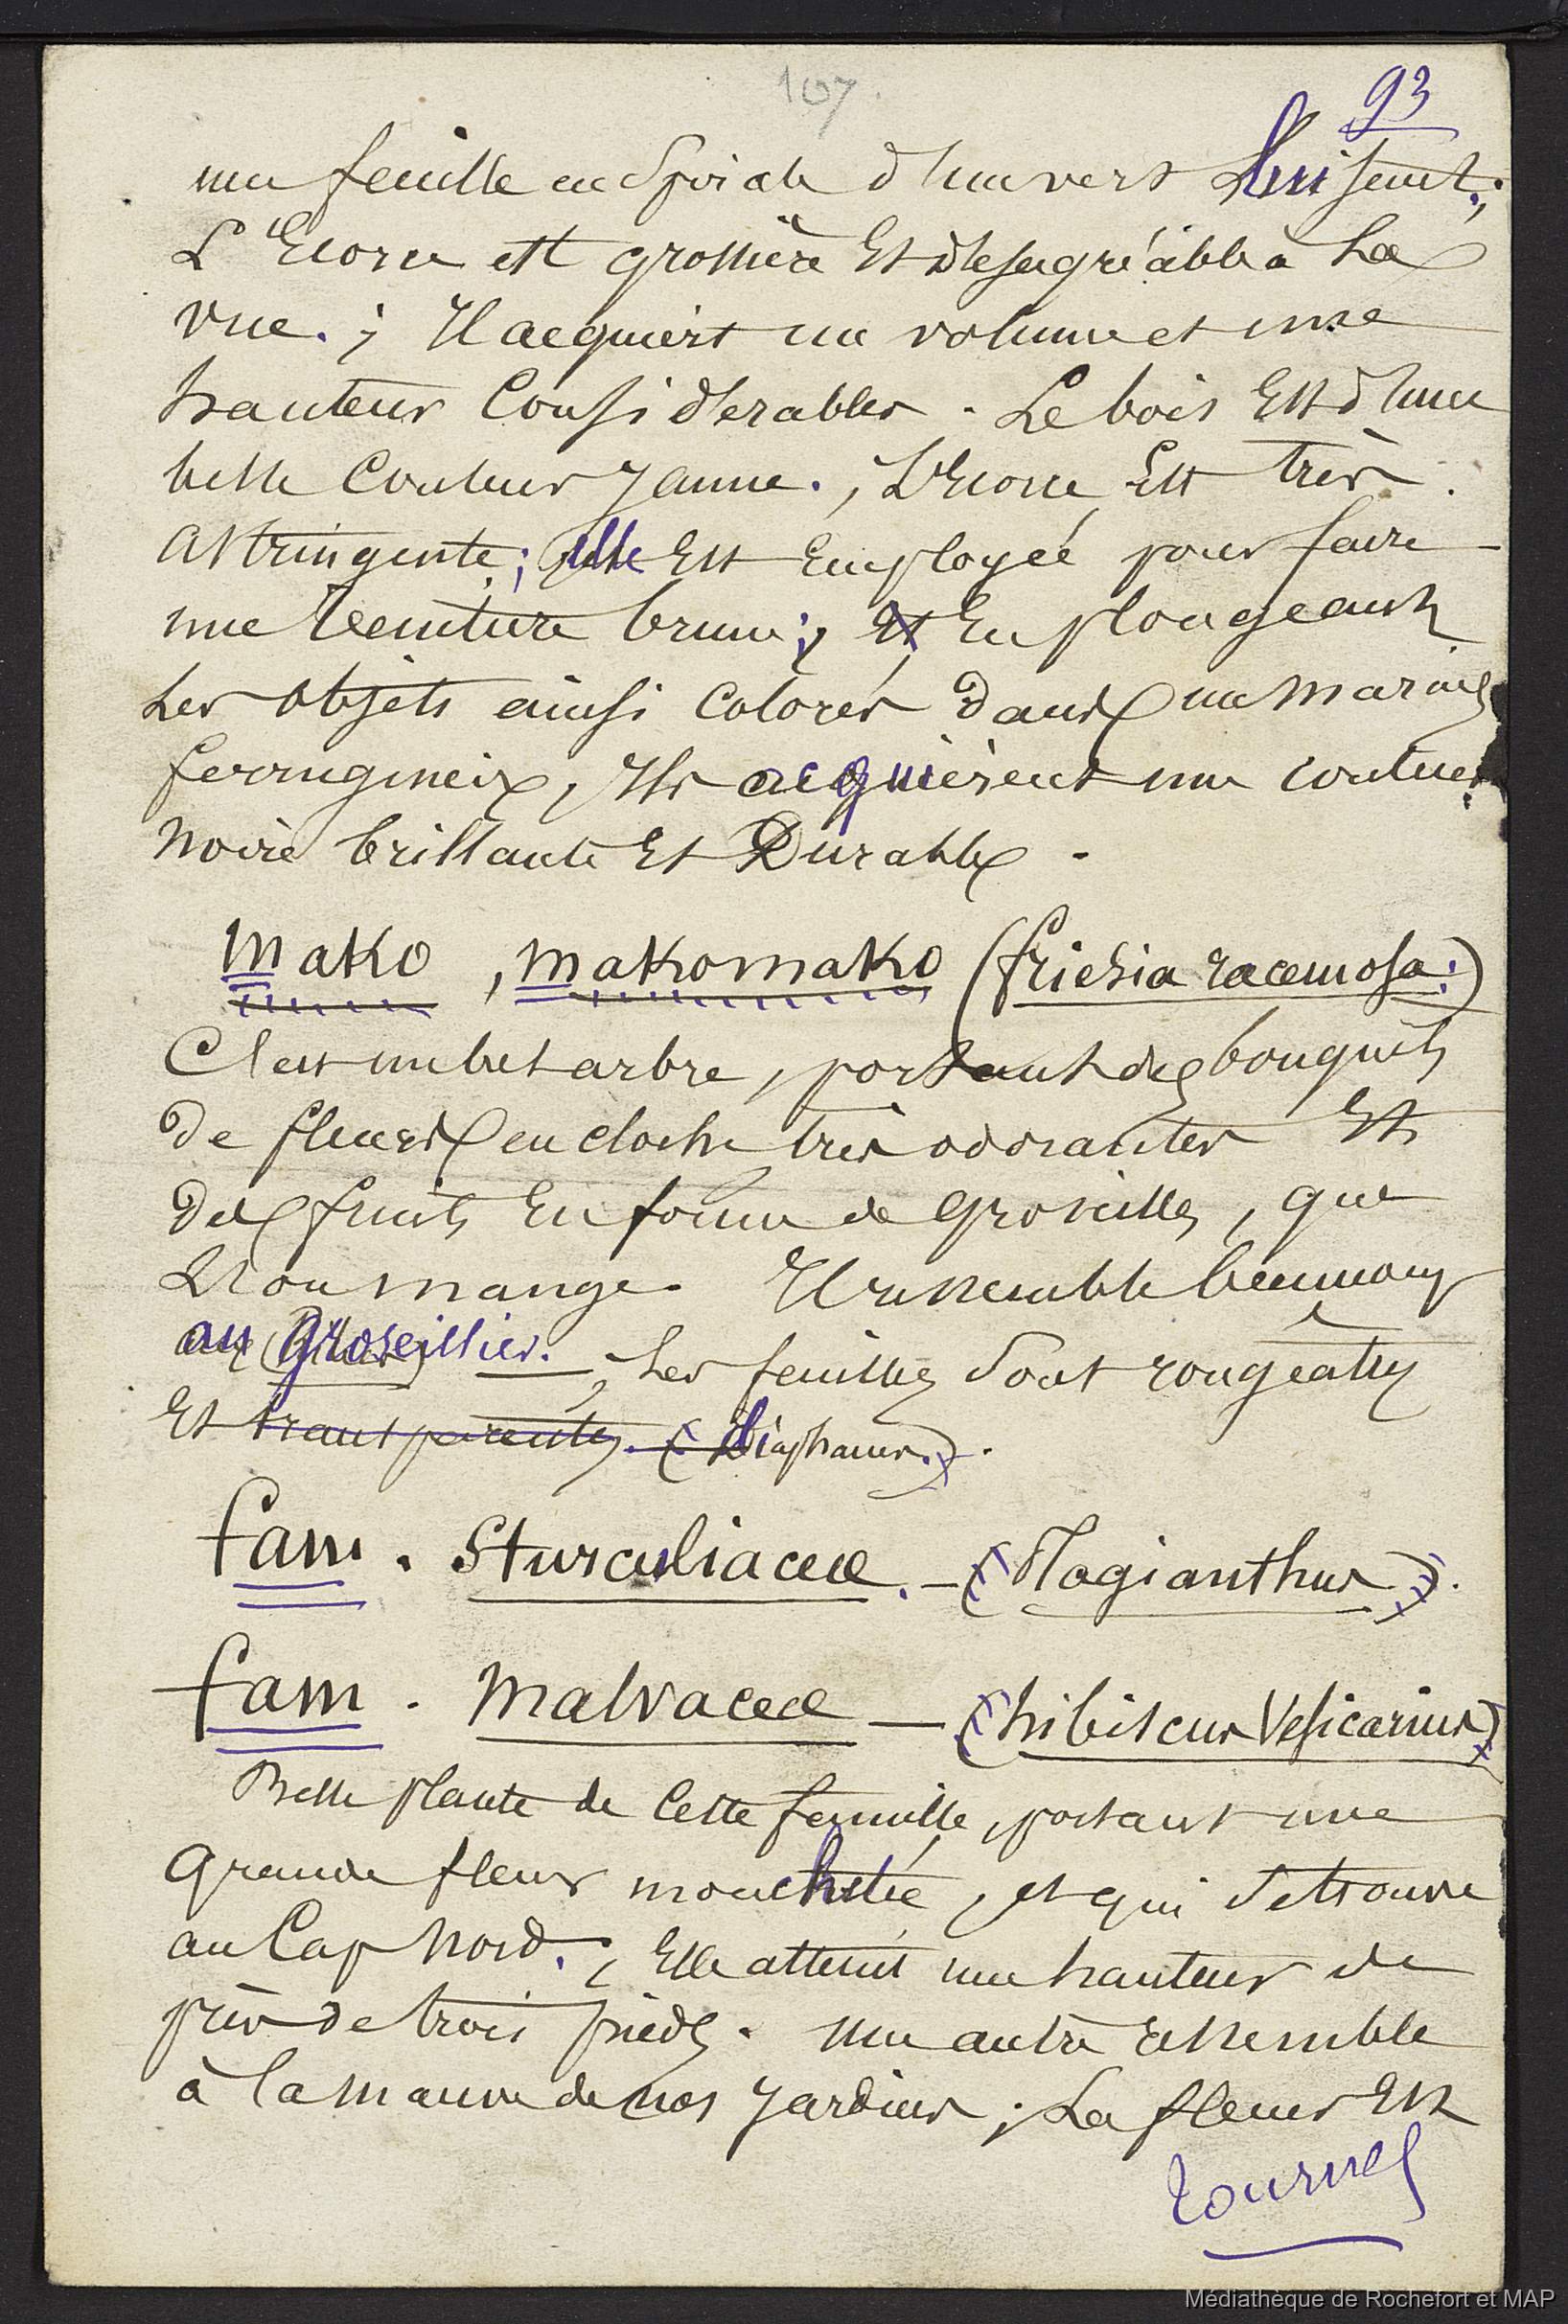 107.
93
une feuille en Spirale d'un vert Luisant.;
L'Ecorce est grossière Et desagréable à La
vue. ; Il acquiert un volume et une
hauteur Considerables. Le bois Est d'une
belle Couleur Jaune. , L'Ecorce Est très
Astringente ; elle Est Employée pour faire
une teinture brune ; Et En plongeant
Les objets ainsi Colorés dans un Marais
ferrugineux, Ils acquièrent une couleur
Noire brillante Et Durable.
Mako, Makomako (friesia racemosa.)
C'est un bel arbre, portant des bouquets
de fleurs en cloche très odorantes Et
des fruits En forme de groseilles, que
L'on mange. Il ressemble beaucoup
au groseillier. — , Les feuilles Sont rougeatres
Et transparentes. (diaphanes.).
fam. Sturculiaceæ. - (Plagianthus).
fam. Malvaceæ — (hibiscus Vesicarius)
Belle plante de Cette famille, portant une
Grande fleur mouchetée, et qui Se trouve
au Cap Nord. , Elle atteint une hauteur de
près de trois pieds. Une autre ressemble
à la Mauve de nos Jardins ; La fleur Est
tournez
Médiathèque de Rochefort et MAP